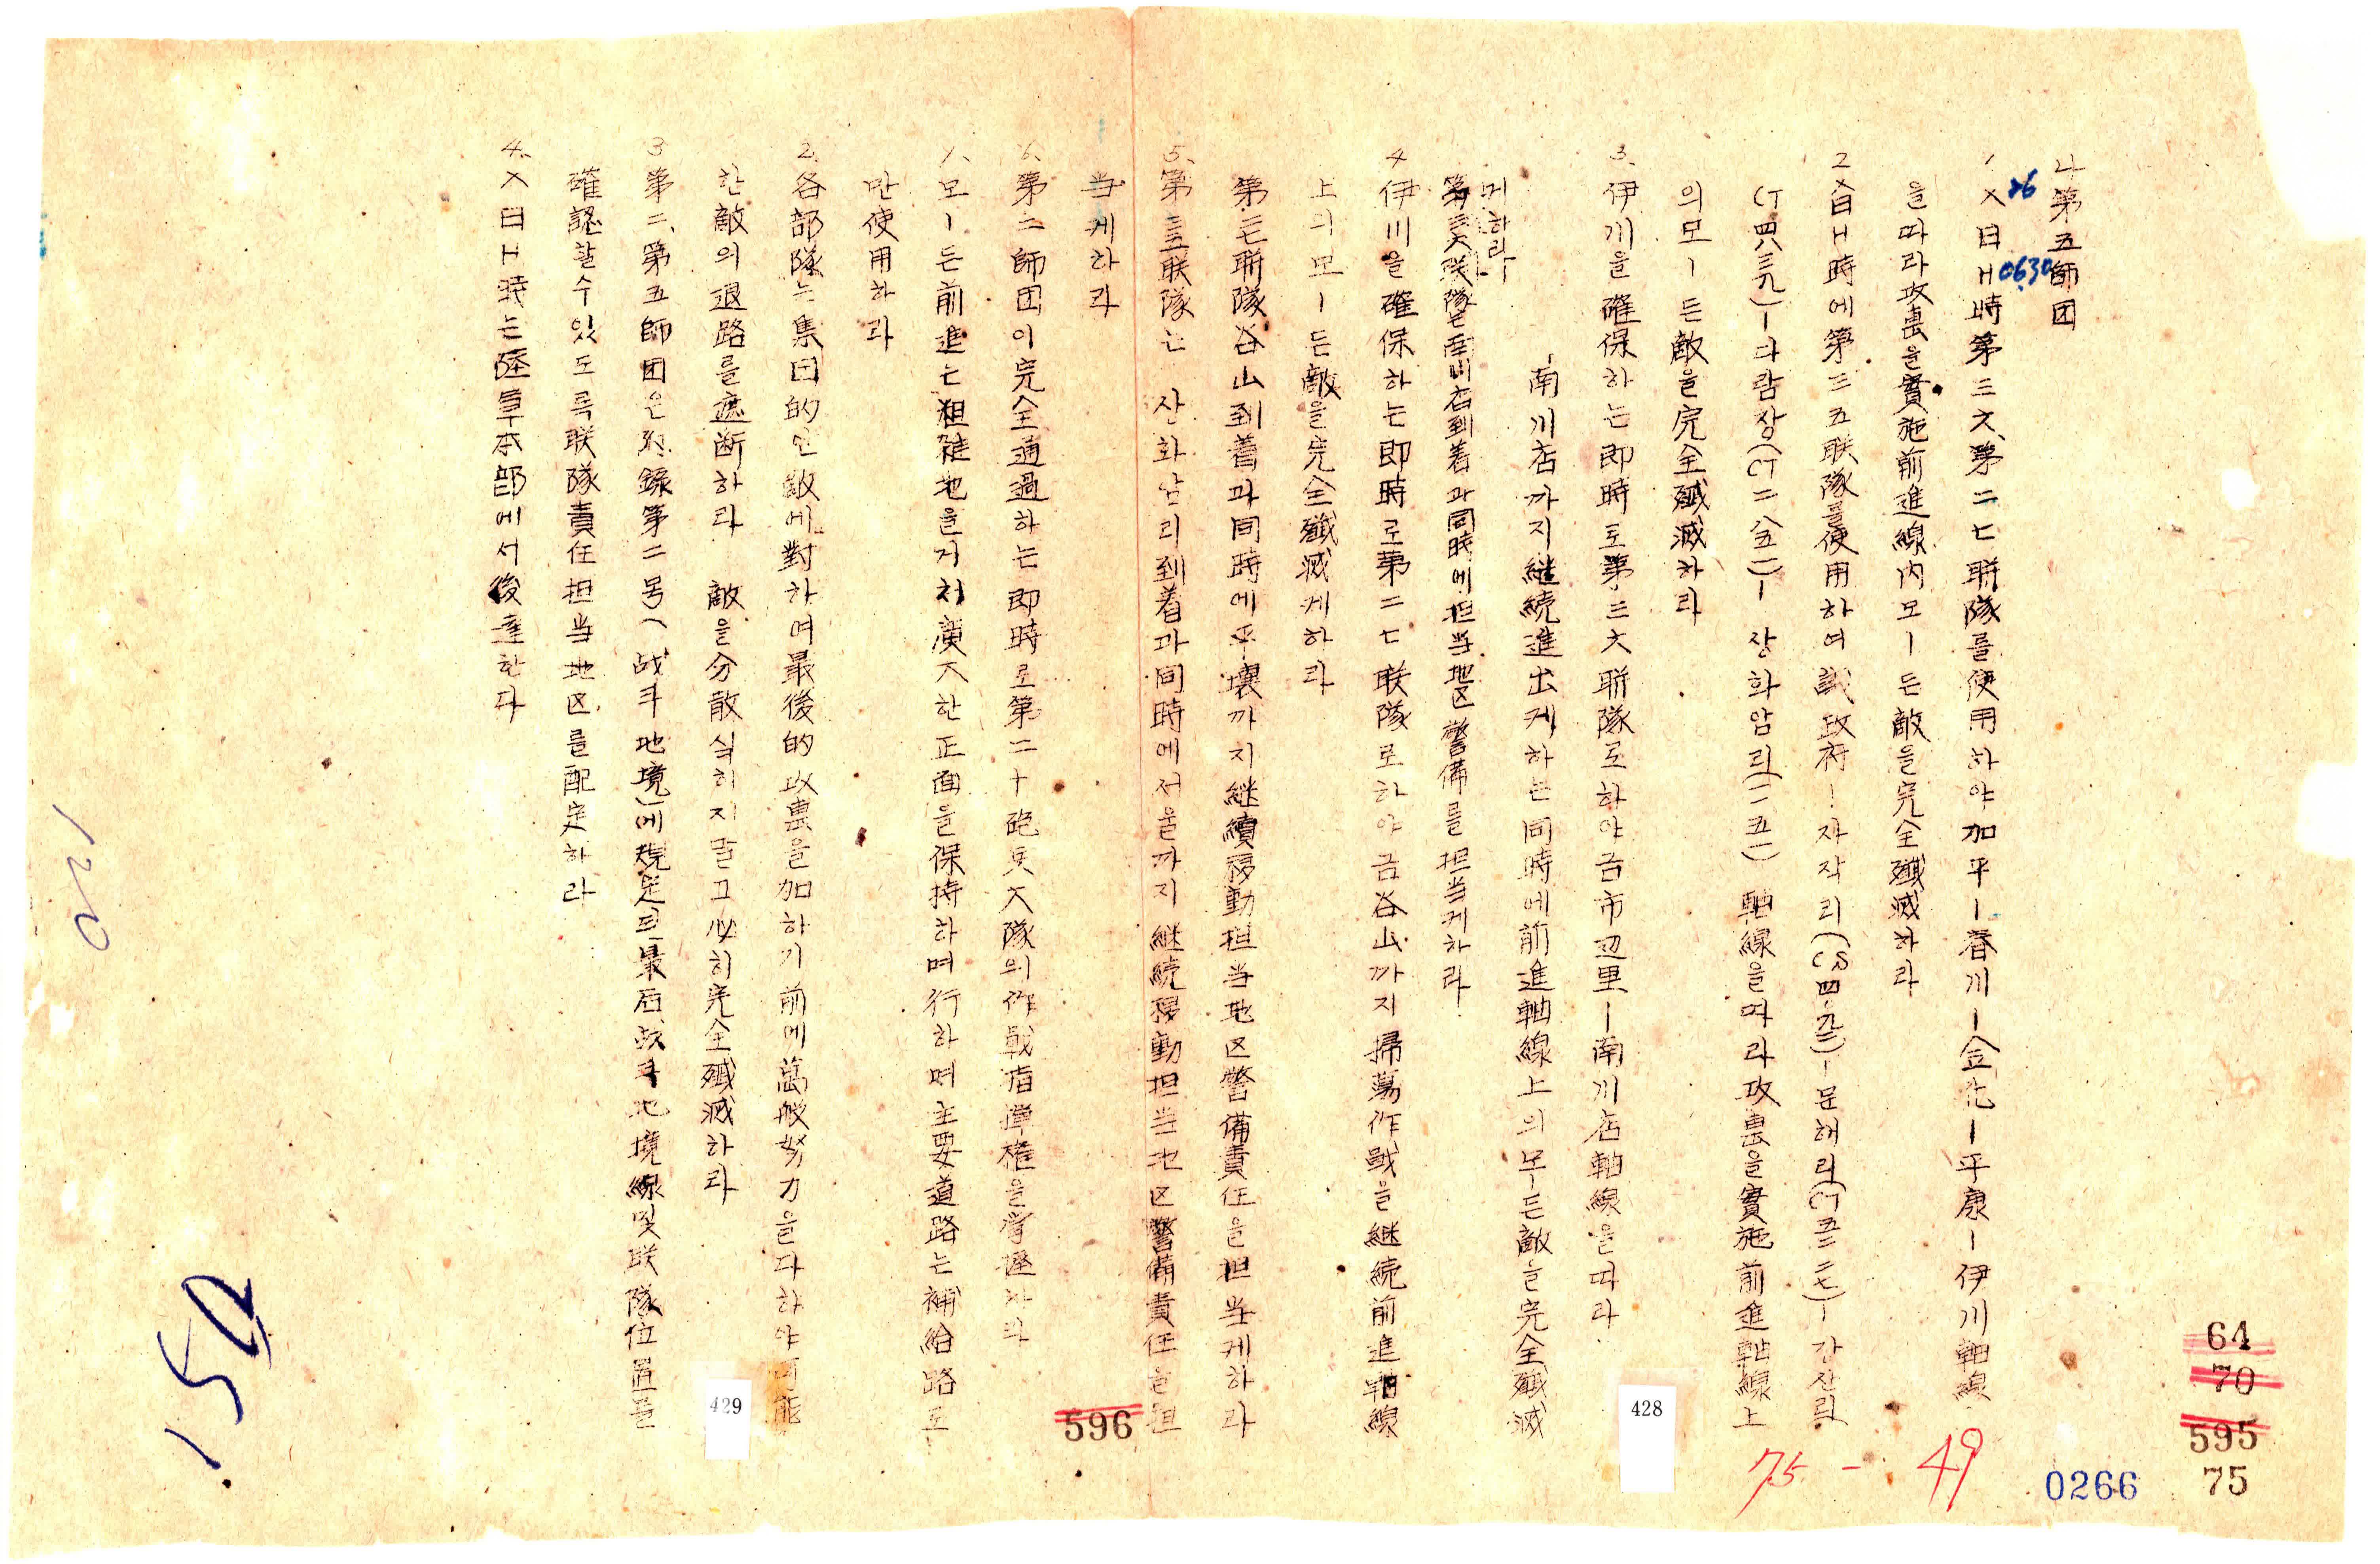 ㄴ 第五師団
26
0630
1. X日H時第三六、第二七聯隊를使用하야加平ー春川ー金化ー平康ー伊川軸線
을따라攻裏을實施前進線內모ー든敵을完全殲滅하라
2 X日H時에第三五联隊를使用하여 議政府ー자작리(CS四 )ー문해리(CT五二二七)ー강산리
(CT四八三九)ー다람상(CT二八五二)ー상화암리(一五 ) 軸線을따라攻裏을實施前進軸線上
의모ー든敵을完全殲滅하라
3. 伊川을確保하는即時로第三六聯隊로하야금市辺里ー南川店軸線을따라
南川店까지継続進出케하는同時에前進軸線上의모ー든敵을完全殲滅
케하라
第三六联隊는南川店到着과同時에担当地区警備를担当케하라
4 伊川을確保하는即時로第二七联隊로하야금谷山까지掃蕩作戰을継続前進軸線
上의모ー든敵을完全殲滅케하라
第二七聯隊谷山到着과同時에平壤까지継續移動担当地区警備責任을担当케하라
5. 第三五联隊는 산화암리到着과同時에서울까지継続移動担当地区警備責任을担
当케하라
6. 第二師団이完全通過하는即時로第二十砲兵大隊의作戰指揮權을掌握하라
1. 모ー든前進는粗雜地을거처廣大한正面을保持하며行하며主要道路는補給路로
만使用하라
2. 各部隊는集団的인敵에對하여最後的攻裏을加하기前에萬般努力을다하야可能
한敵의退路를遮断하라 敵을分散식히지말고必히完全殲滅하라
3 第二、第五師団은附錄第二号(战斗地境)에規定된最后战斗地境線및联隊位置를
確認할수있도록联隊責任担当地区를配定하라
4. X日H時는陸軍本部에서後達한다
64
70
595
75
0266
75 - 49
428
596
429
120
150